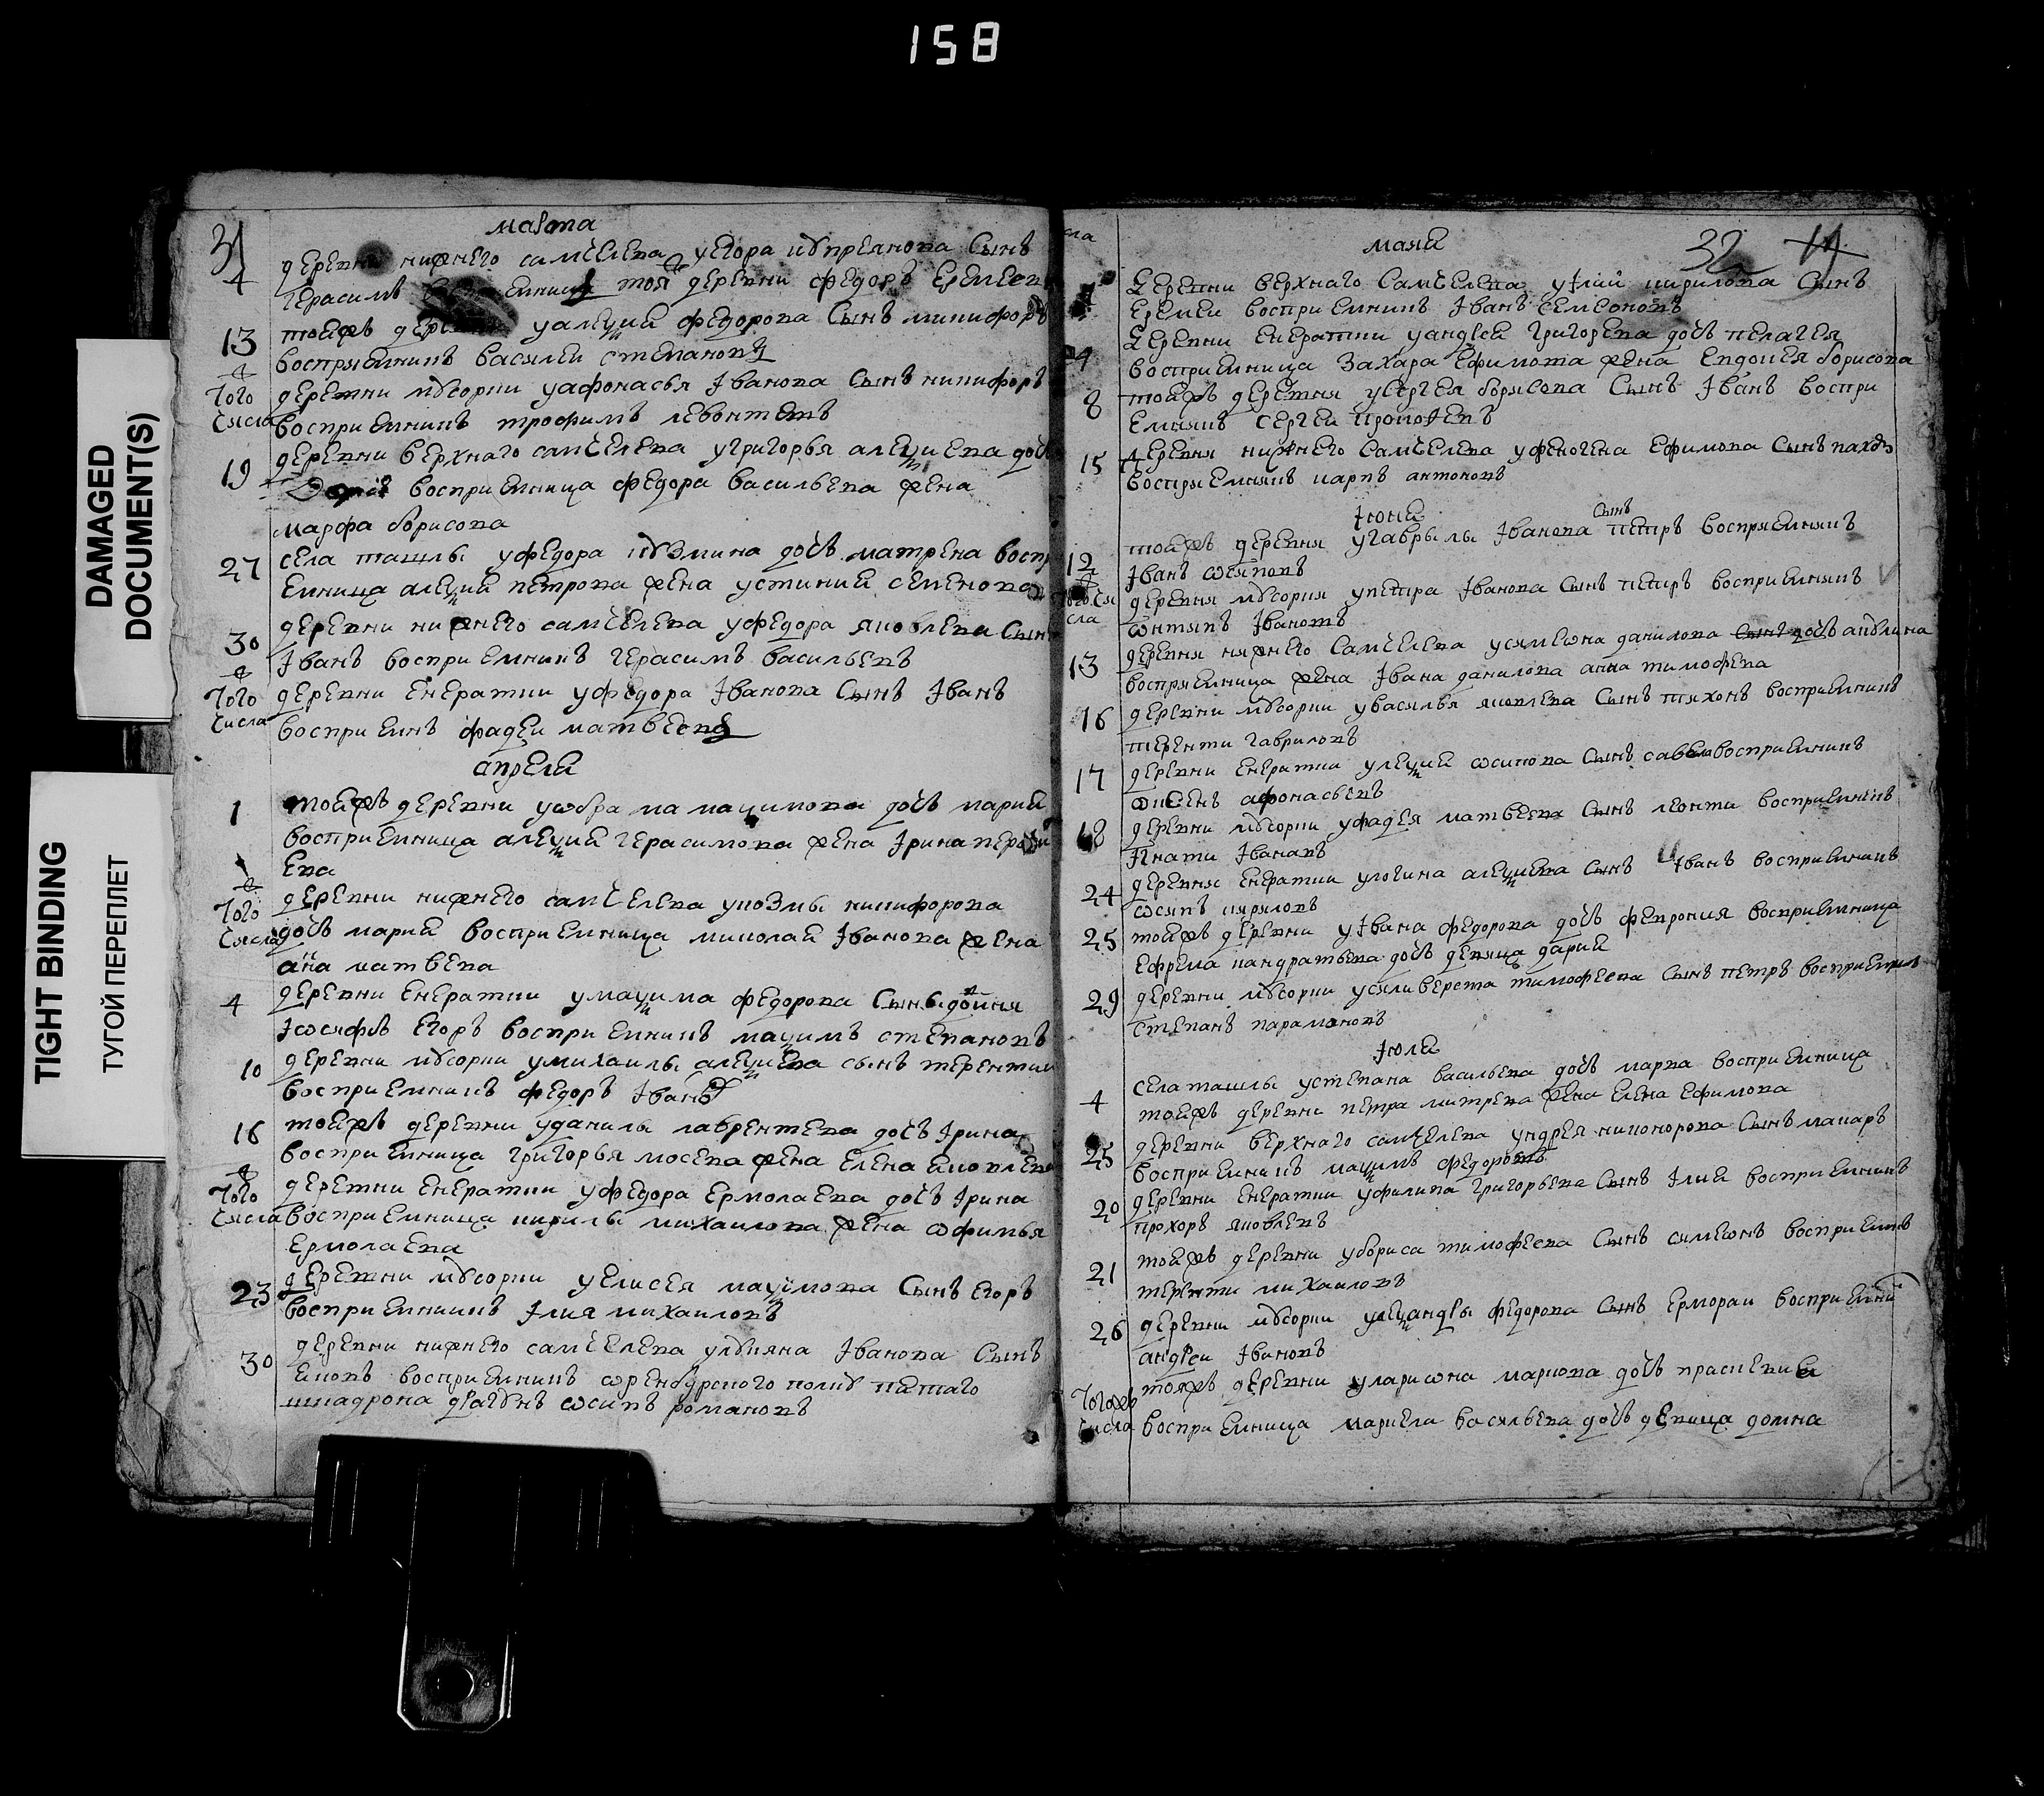 158
DAMAGED
DOCUMENT(S)
TIGHT BINDING
ТУГОЙ ПЕРЕПЛЕТ
31
марта
4 деревни нижнего самселева уегора купреянова сынъ
герасимъ тоя деревни федоръ еремеев
13 тоижъ уалеѯия федорова сынъ никифоръ
восприемникъ василеи степановъ
того деревни мусорки уафонасья Iванова сынъ никифоръ
числа восприемникъ трофимъ левонтевъ
19 деревни верхнаго самселева угригорья алеѯиева
восприемница федора васильева жена
марфа борисова
27 села ташлы уфедора кузмина дочь матрена воспр
емница алеѯия петрова жена устиния семенова
30 деревни нижнего самселева уфедора яковлева сынъ
Iванъ восприемникъ герасимъ васильевъ
того деревни екератки уфедора Iванова сынъ Iванъ
числа восприемнъ фадеи матвеевъ
апреля
1 тоижъ деревни маѯимова дочь мария
восприемница алеѯия герасимова жена Iрина
ева
того деревни нижнего самселева укозмы никифорова
числа дочь мария восприемница николая Iванова жена
анна матвева
4 деревни екератки умаѯима федорова сынъ двойня
Iѡсифъ егоръ восприемникъ маѯимъ степановъ
10 деревни мусорки умихаилы алеѯиева сынъ терентии
восприемникъ федоръ Iвановъ
16 тоижъ деревни уданилы лаврентева дочь Iрина
восприемница григорья мосева жена елена яковлева
того деревни екератки уфедора ермолаева дочь Iрина
числа восприемница кирилы михаилова жена ѡфимья
ермолаева
23 деревни мусорки уелисея маѯимова сынъ егоръ
восприемникъ Iлия михаиловъ
30 деревни нижнего самселева улукяна Iванова сынъ
яковъ восприемникъ ѡренбурского полку пятаго
шкадрона драгунъ ѡсипъ романовъ
32 14
маия
деревни верхнаго самселева уIлии кирилова сынъ
еремеи восприемникъ Iванъ семеновъ
4 деревни екератки уандрея григорева дочь пелагея
восприемница захара ефимова жена евдокея борисова
8 тоижъ деревни усергея борисова сынъ Iванъ воспри
емникъ сергеи прокоfевъ
15 деревни нижнего самселева уфеногена ефимова сынъ
восприемникъ карпъ антоновъ
Iюня
сынъ
12 тоижъ деревни угаврылы Iванова петръ восприемникъ
Iванъ ѡсиповъ
того чи деревни мусорки упетра Iванова сынъ петръ восприемникъ
сла Iвановъ
13 деревни нижнего самселева усимеѡна данилова сынъ дочь акулина
восприемница жена Iвана данилова анна тимофева
16 деревни мусорки увасилья яковлева сынъ тихонъ восприемникъ
теренти гавриловъ
17 деревни екератки улеѯия ѡсипова сынъ савела восприемникъ
афонасьевъ
18 деревни мусорки уфадея матвеева сынъ леонти восприемникъ
Iгнати Iвановъ
24 деревни екератки улогина алеѯиева сынъ Iванъ восприемникъ
ѡсипъ кириловъ
25 тоижъ деревни уIвана федорова дочь феврония восприемница
ефрема кандратьева дочь девица дария
29 деревни мусорки усиливерста тимофеева сынъ петръ восприемник
степанъ парамоновъ
Iюля
4 села ташлы устепана васильева дочь марва восприемница
тоижъ деревни петра митрева жена елена ефимова
25 деревни верхнаго самселева ундрея никонорова сынъ макаръ
восприемникъ маѯимъ федоровъ
20 деревни екератки уфилипа григорьева сынъ Iлия восприемникъ
прохоръ яковлевъ
21 тоижъ деревни убориса тимофеева сынъ симеѡнъ восприемнъ
теренти михаиловъ
26 деревни мусорки улеѯандры федорова сынъ ермолаи восприемни
андреи Iвановъ
тогожъ тоижъ деревни уларисна маркова дочь
числа восприемница маркела васильева дочь девица домна